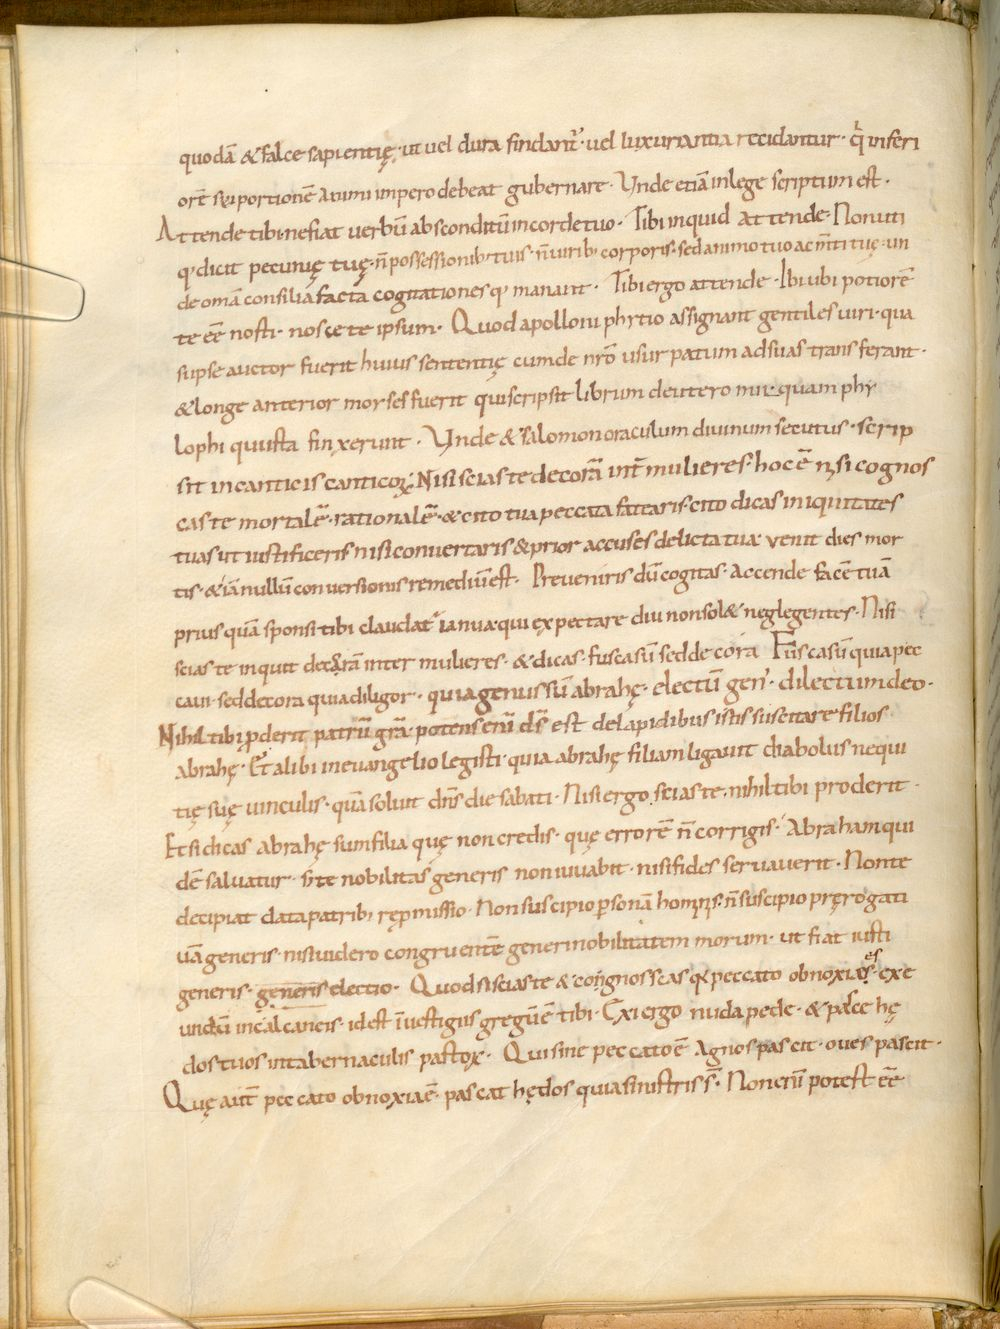 quodā & falce sapientię · ut vel dura findant᷑ · uel luxuriantia recidantur · qͥ inferi
orē sui portionē animi impero debeat gubernare · Unde etiā inlege scriptum est ·
Attende tibi · nefiat uerbū absconditū incordetuo · Tibi inquid attende · Non uti
qꝫ dicit pecunię tuę · n̄ possessionibꝫ tuis · n̄ uiribꝫ corporis · sed animo tuo ac m̄ti tuę · un
de omā consiliā facta cogitationesqꝫ manant · Tibi ergo attende · Ibi ubi potiorē
te eē nosti · nosce te ipsum · Quod apolloni phytio assignant gentiles uiri · qua
si ipse auctor fuerit huius sententię cum de nr̄o usurpatum adsuas transferant ·
& longe anterior moyses fuerit qui scripsit librum deutero mii · quam phy
lophi qui ista finxerunt · Unde & salomon oraculum diuinum secutus · scrip
sit incanticis canticoꝝ · Nisi scias te decorā int᷑ mulieres · hoc ē nisi cognos
cas te mortalē · rationalē · & cito tua peccata fatearis · cito dicas iniquitates
tuas ut iustificeris nisi conuertaris & prior accuses delicta tua · venit dies mor
tis · & iā nullū conuersionis remediū est · Preueniris dū cogitas · Accende facē tuā
prius quā sponsi tibi claudat᷑ ianua · qui expectare diu non sol& neglegentes · Nisi
scias te inquit decorā inter mulieres · & dicas · fusca sū sed decora Fusca sū quia pec
caui · sed decora quia diligor · quia genus sū abrahę · electū gen᾽ · dilectum deo ·
Nihil tibi ꝓderit patrū gr̄a · potens enī d̄s est de lapidibus istis suscitare filios
abrahę · Et alibi in euangelio legisti · quia abrahę filiam ligauit diabolus nequi
tię suę uinculis · quā soluit dn̄s die sabati · Nisi ergo scias te · nihil tibi proderit ·
Et si dicas abrahę sum filia quę non credis · quę errorē n̄ corrigis · Abraham qui
dē saluatur · s; te nobilitas generis non iuuabit · nisi fides seruauerit · Non te
decipiat data patribꝫ repmissio · Non suscipio psonā hominis · n̄ suscipio prerogati
uā generis · nisi uidero congruentē generi nobilitatem morum · ut fiat iusti
generis · generis electio · Quod si scias te & congnosscas qꝫ peccato obnoxiaes · exe
undū incalcaneis · id est ī uestigiis gregū ē tibi · Exi ergo nuda pede · & pasce hę
dos tuos intabernaculis pastoꝝ · Qui sine peccato ē Agnos pascit · oues pascit ·
Quę aūt peccato obnoxia ē · pascat hędos quia sinistri s̄ · Non enī potest eē